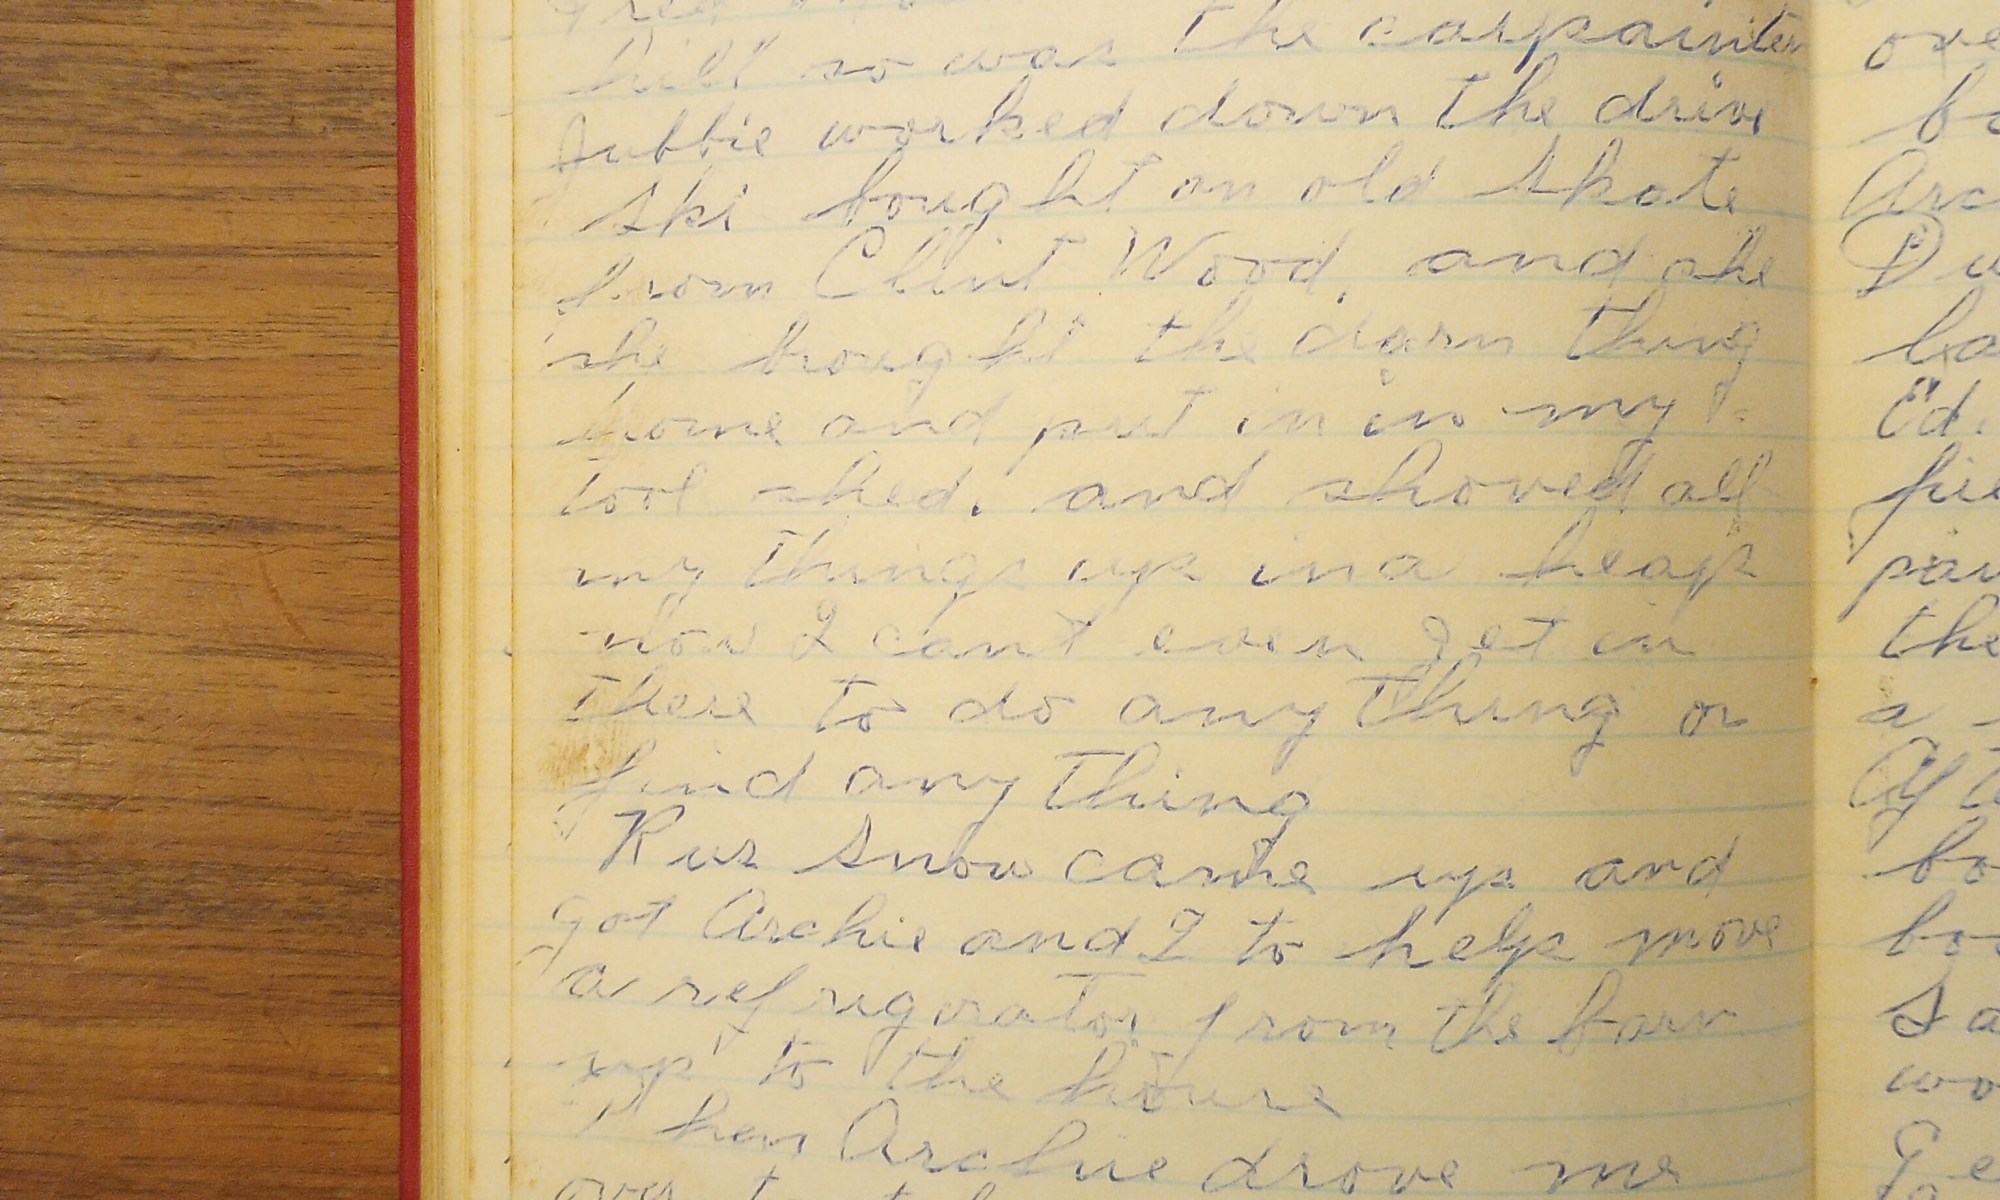 hill so was the carpainter
Jubbie worked down the drive
Ski bought an old skate
from Clint Wood, and she
she brought the darn thing
home and put in in my
tool shed. and shoved all
my things up in a heap
now I cant even get in
there to do any thing or
find any thing
Rus Snow came up and
got Archie and I to help move
a refrigerator from the barn
up to the house
Then Archie drove me
ove
b
Arc
Du
la
Ed.
fie
pain
the
a
Aft
bo
boo
Sa
wo
Ge